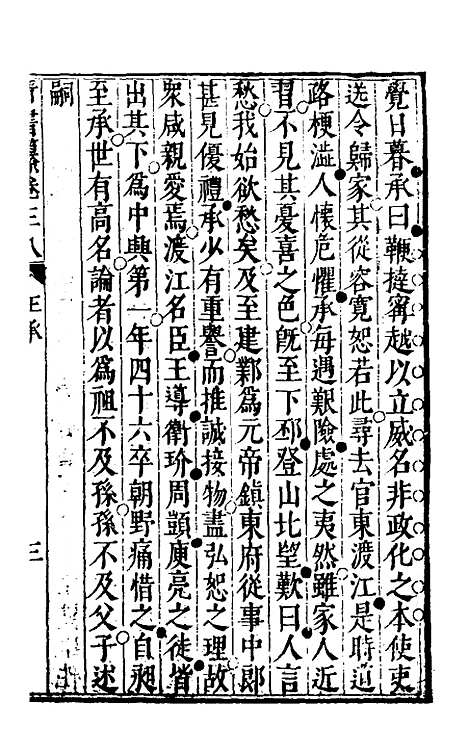 覺日暮承曰鞭撻甯越以立威名非政化之本使吏
送令歸家其從容寬恕若此尋去官東渡江是時道
路梗澁人懷危懼承每遇艱險處之夷然雖家人近
習不見其憂喜之色旣至下邳登山北望歎曰人言
愁我始欲愁矣及至建鄴爲元帝鎮東府從事中郞
甚見優禮承少有重譽而推誠接物盡弘恕之理故
衆咸親愛焉渡江名臣王導衛玠周顗庾亮之徒皆
出其下爲中興第一年四十六卒朝野痛惜之自昶
至承世有高名論者以爲祖不及孫孫不及父子述
嗣
卷三八
王承
三